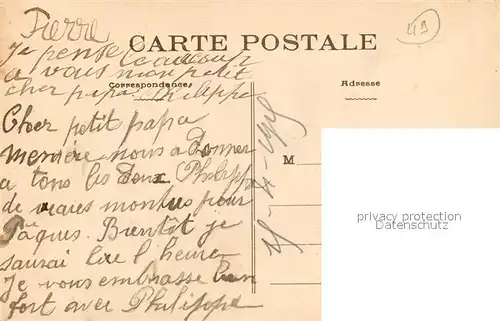 Pierre
49
Je pense beaucoup
CARTE POSTALE
a vous mon petit
cher papa. Philippe
Correspondances
Adresse
Cher petit papa
Memère nous a donner
a tous les deux Philippe
de vraies montres pour
Pâques. Bientôt je
saurai lire l'heure
Je vous embrasse bien
fort avec Philippe
M
privacy protection
Datenschutz